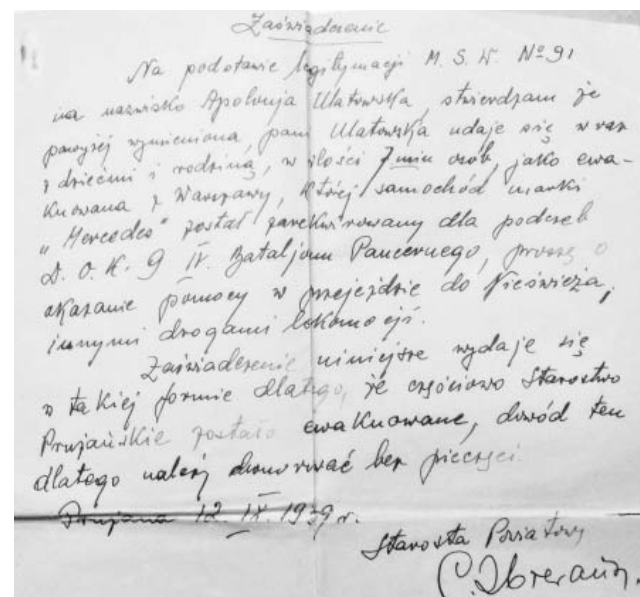 Zaświadczenie
Na podstawie legitymacji M. S. W. № 91
na nazwisko Apolonja Ulatowska, stwierdzam że
powyżej wymieniona, pani Ulatowska udaje się wraz
z dziećmi i rodziną, w ilości 7 miu osób, jako ewa-
kuowana z Warszawy, której samochód marki
"Mercedes" został zarekwirowany dla podrzeb
D. O. K. 9 IV. Bataljonu Pancernego, proszę o
okazanie pomocy w przejeździe do Nieświeża,
innymi drogami lokomocji.
Zaświadczenie niniejsze wydaje się
w takiej formie dlatego, że częściowo Starostwo
Prużańskie zostało ewakuowane, dowód ten
dlatego należy honorować bez pieczęci.
Prużana 12. IX. 1939 r.
Starosta Powiatowy